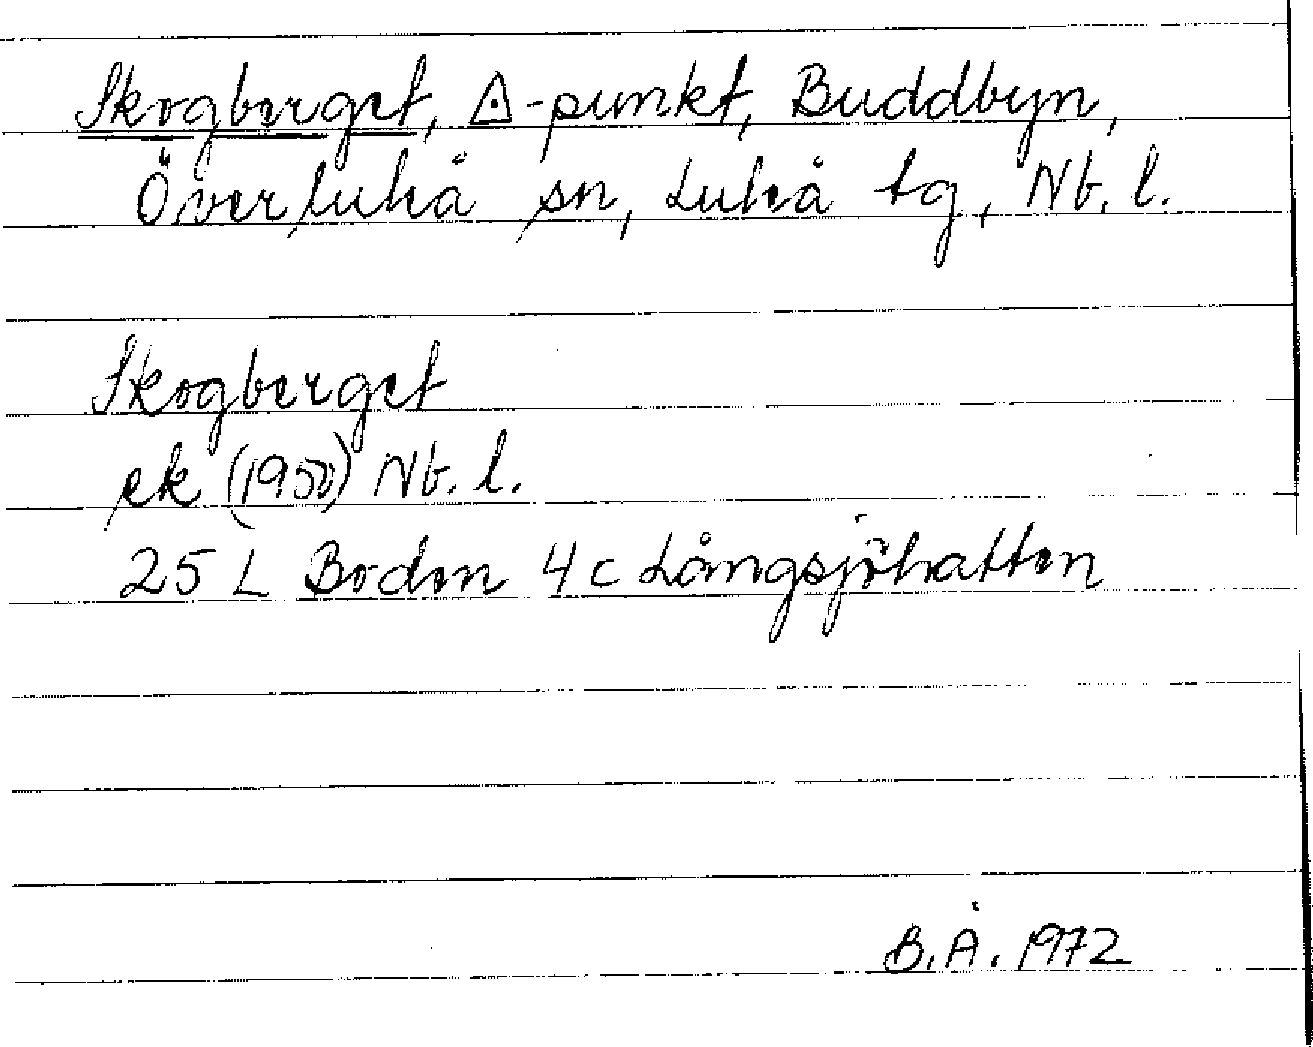 Skogberget, ◬-punkt, Buddbyn,
Överluleå sn, Luleå tg, Nb. l.
Skogberget
ek (1950) Nb. l.
25 L Boden 4 c Långsjöhatten
B.Å. 1972